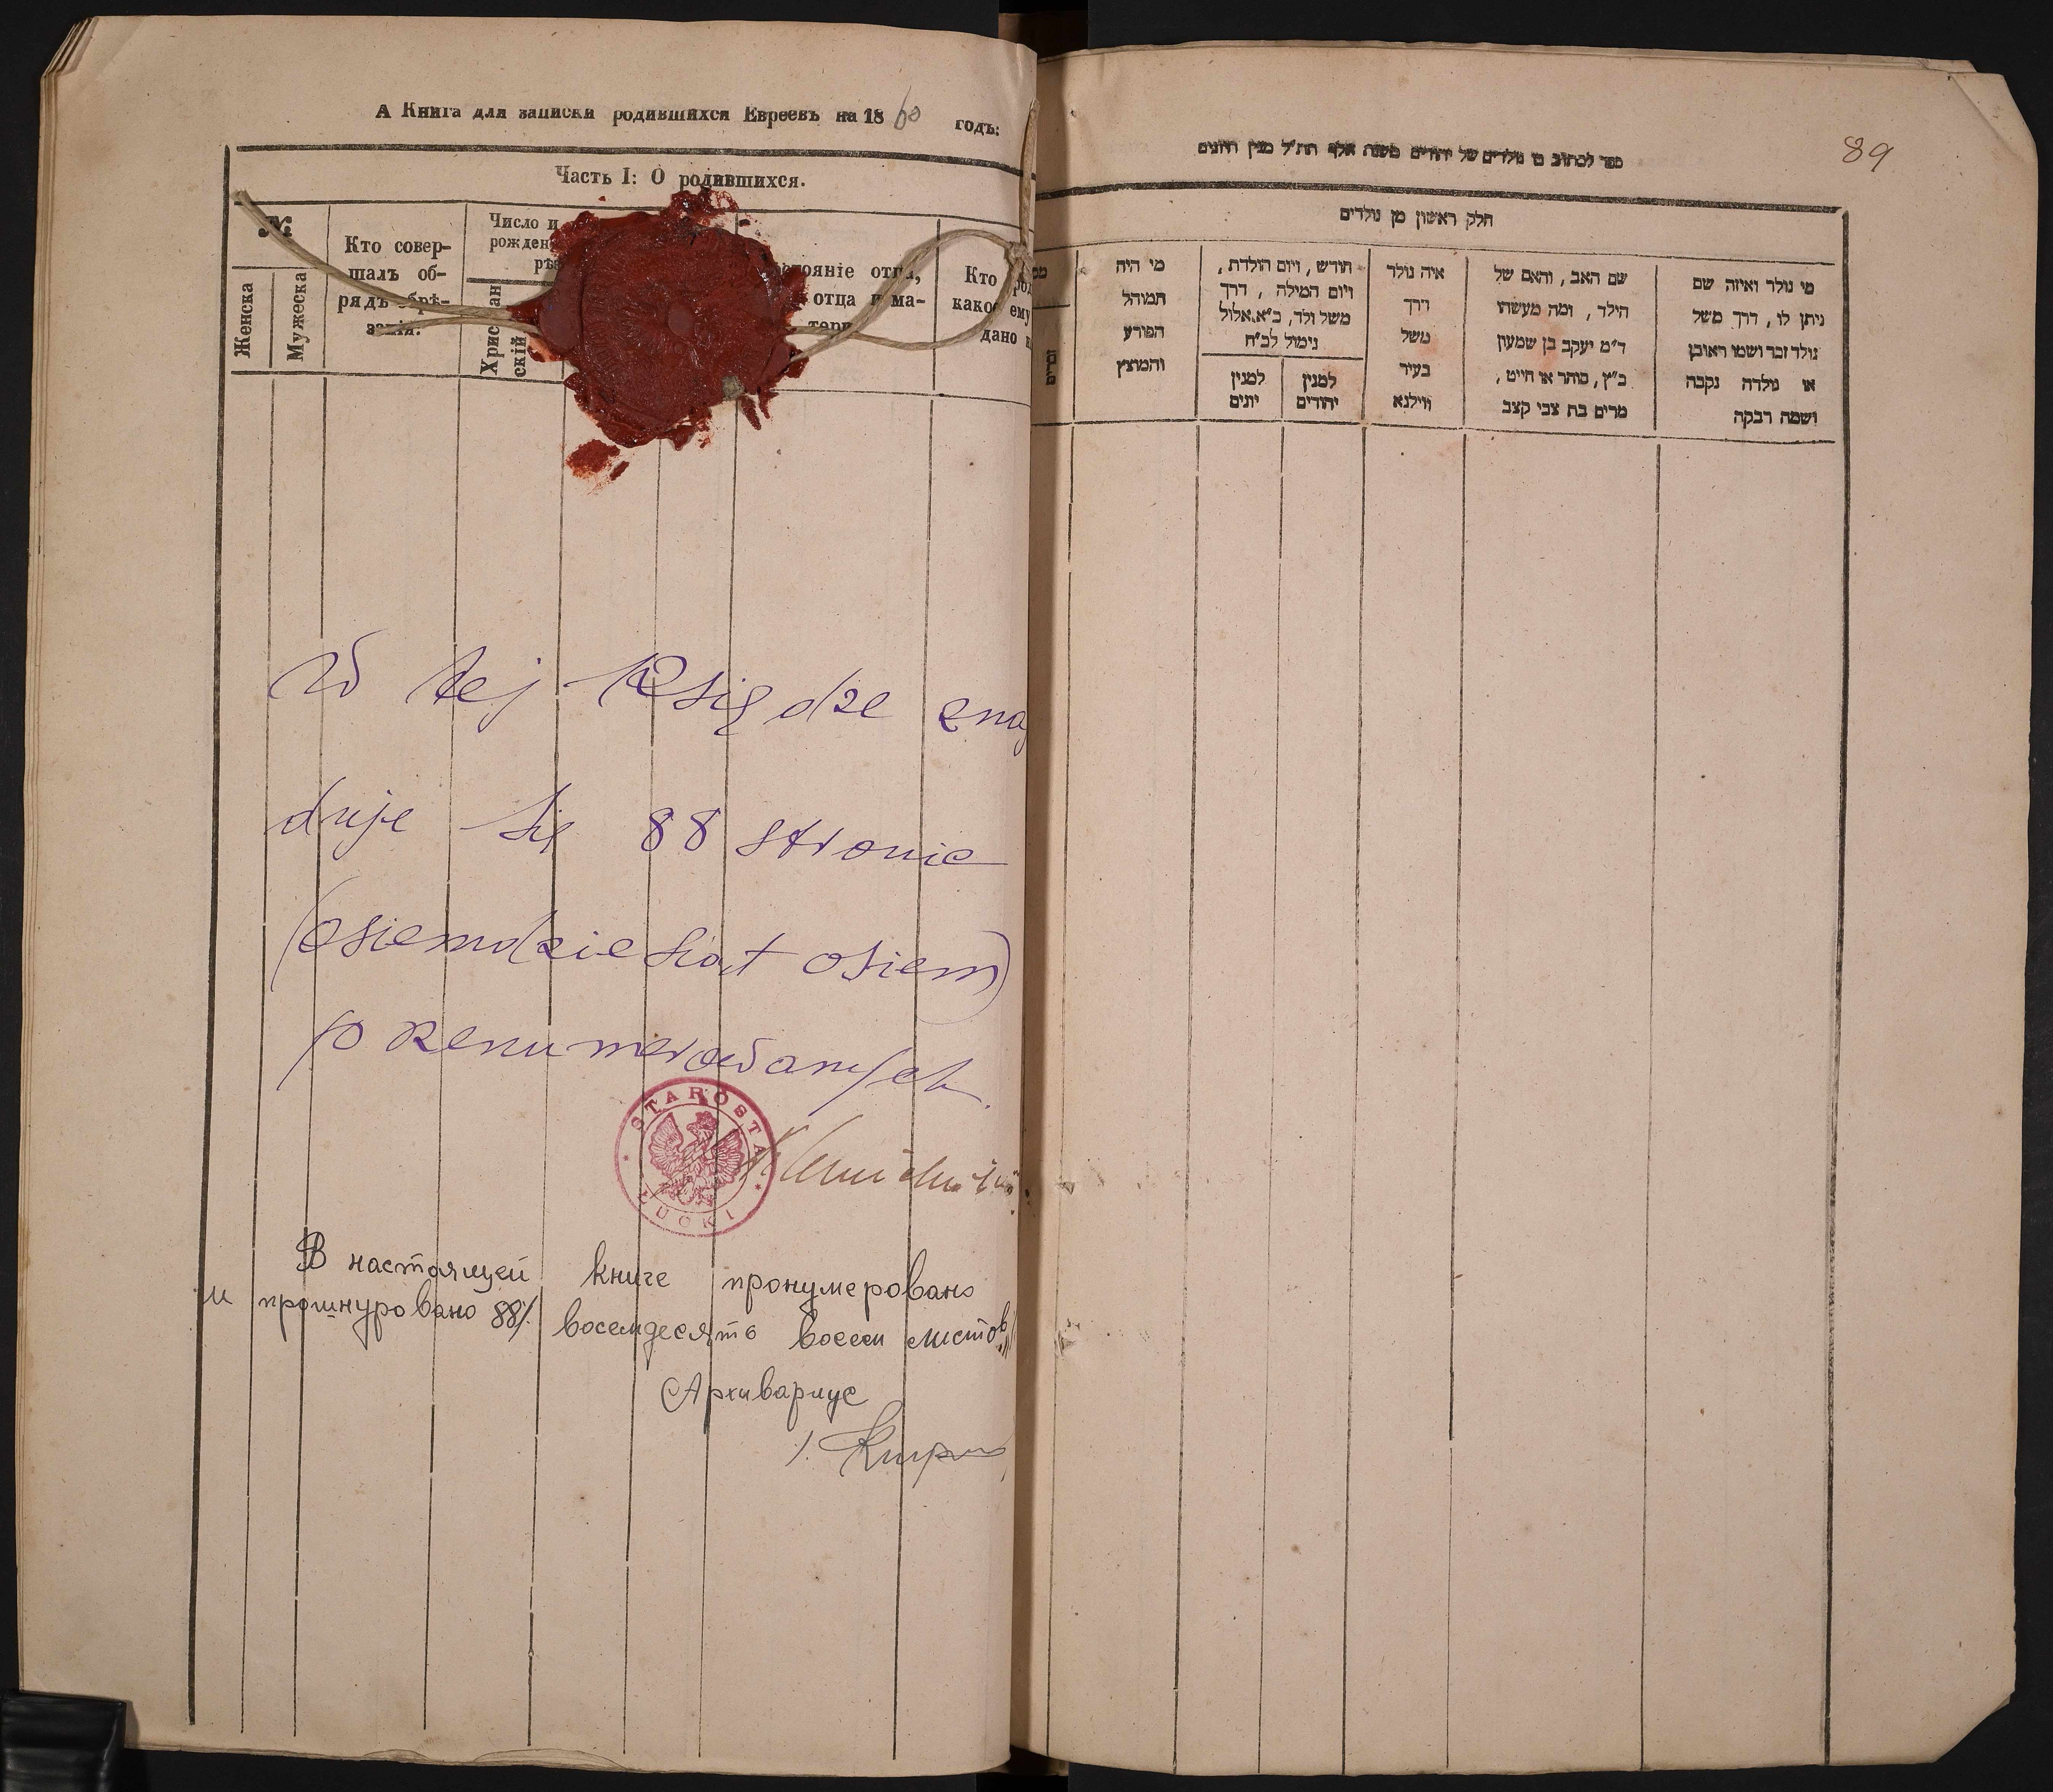 А Книга для записки родившихся Евреевъ на 1860 годъ:
Часть I: О родившихся.
№
Женска
Мужеска
Кто совер-
шалъ об-
рядъ обрѣ-
занія.
Число и
рожден
рѣз
Христіан
скій
стояніе отца,
отца и ма-
тери
Кто род
какое ему
дано и
W tej Księdze znaj
duje się 88 stronic
(osiemdziesiąt osiem)
ponumerowanych
STAROSTA
ŁUCKI
В настоящей книге пронумеровано
и прошнуровано 88/ восемдесять восем листов//
Архивариус
89
ספר לכתוב מן נולדים של יהודים משנת אלף תת״ל מנין היונים
חלק ראשון מן נולדים
מי נולד ואיזה שם
ניתן לו, דרך משל
נולד זכר ושמו ראובן
או נולדה נקבה
ושמה רבקה
שם האב, והאם של
הילד, ומה מעשהו
ד״מ יעקב בן שמעון
כ״ץ, סוחר או חייט,
מרים בת צבי קצב
איה נולד
דרך
משל
בעיר
ווילנא
חודש, ויום הולדת,
ויום המילה, דרך
משל ולד, כ״א אלול
נימול לכ״ח
למנין
יהודים
למנין
יונים
מי היה
המוהל
הפורע
והמוצץ
זכרים